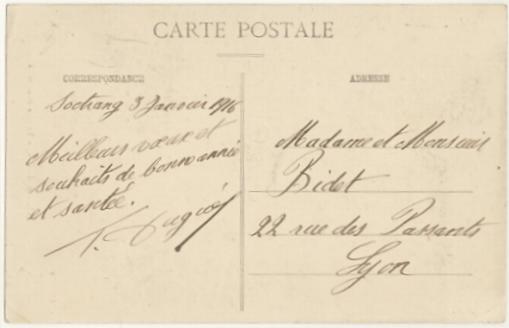 CARTE POSTALE
CORRESPONDANCE
ADRESSE
Soctrang 3 Janvier 1916
Meilleurs vœux et
souhaits de bonne année
et santé.
Madame et Monsieur
Bidet
22 rue des Passants
Lyon